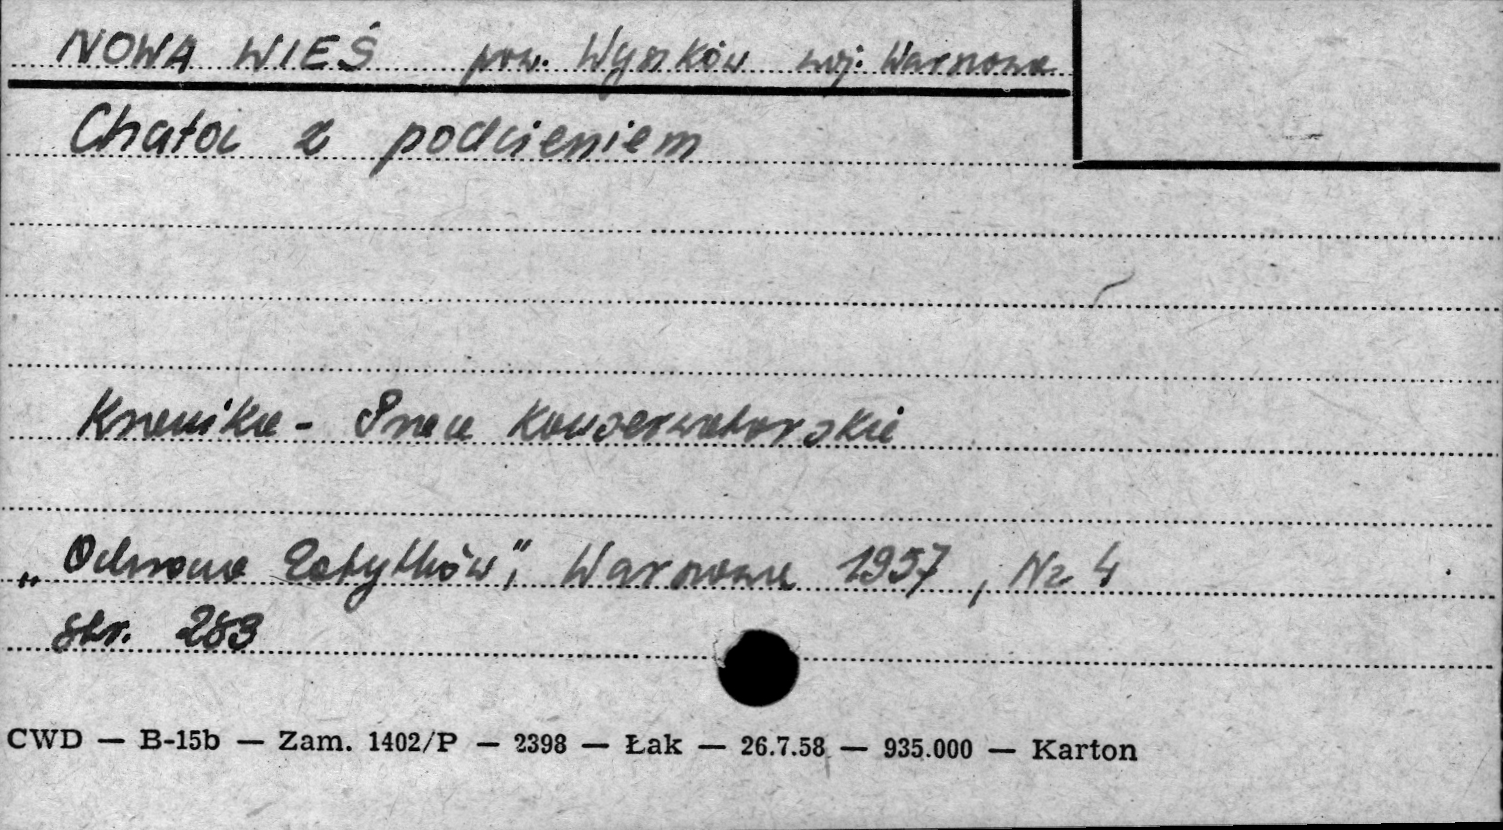 NOWA WIEŚ pow. Wyszków woj. Warszawa
Chata z podcieniem
Kronika - Prace Konserwatorskie
„Ochrona Zabytków", Warszawa 1957, Nr 4
str. 283
CWD — B-15b — Zam. 1402/P — 2398 — Łak — 26.7.58 — 935.000 — Karton